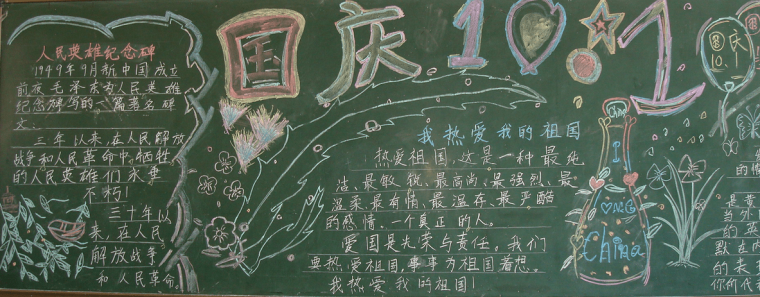 国庆10·1
人民英雄纪念碑
1949年9月新中国成立
前夜毛泽东为人民英雄
纪念碑写的一篇著名碑
文。
三年以来,在人民解放
战争和人民革命中牺牲
的人民英雄们永垂
不朽!
三十年以
来,在人民
解放战争
和人民革命
我热爱我的祖国
热爱祖国,这是一种最纯
洁、最敏锐、最高尚、最强烈、最
温柔、最有情、最温存、最严酷
的感情。一个真正的人。
爱国是光荣与责任。我们
要热爱祖国,事事为祖国着想。
我热爱我的祖国!
China
I
LOVE
China
国庆
10.
是黄
当外
的英
默在内
的表
你所代表